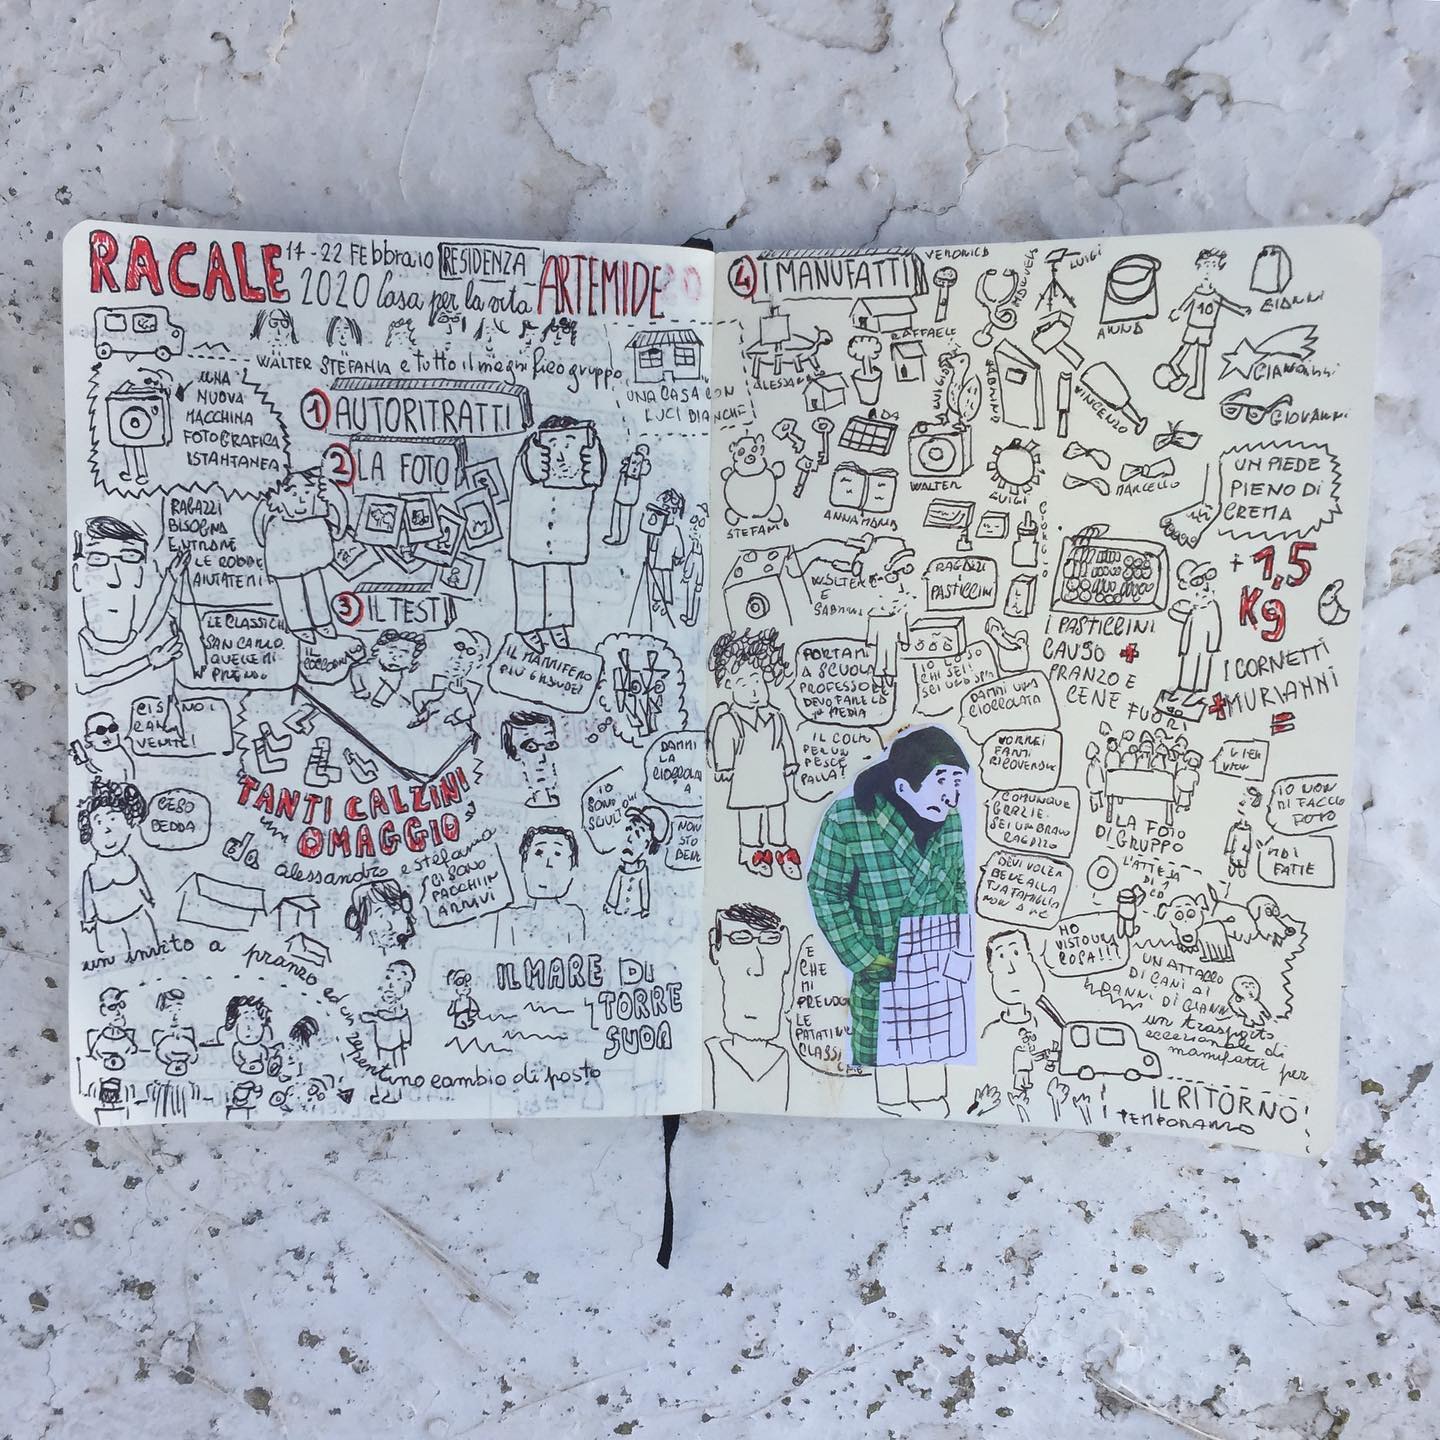 RACALE 17-22 FEbbraio RESIDENZA ARTEMIDE
2020 Casa per la vita
WALTER STEFANIA e tutto il meghi fico gruppo
UNA CASA CON
LUCI BIANCHE
UNA
NUOVA
MACCHINA
FOTOGRAFICA
ISTANTANEA
1 AUTORITRATTI
2 LA FOTO
3 IL TEST
RAGAZZI
BISOGNA
ENTRARE
LE ROBBE
AIUTATEMI
LE CLASSICHE
SAN CARLO
QUELLE MI
PRENDI
IL
IL MAMMIFERO
PIÙ GRANDE!
CI SONO I
VENITE!
CERO
BEDDA
TANTI CALZINI
OMAGGIO
da alessandro e stefania
CI SONO
PACCHI IN
ARRIVI
IO
SONO
DAMMI
LA
CIOCCOLA
A
NON
STO
BENE
un invito a pranzo ed un repentino cambio di posto
IL MARE DI
TORRE
SUDA
4 I MANUFATTI
VERONICA
LUIGI
ANNA
10
GIANNI
RAFFAELE
ALESSA
SABRINA
VINCENZO
GIOVANNI
STEFANO
ANNAMARIA
WALTER
LUIGI
MARCELLO
GIORGIO
UN PIEDE
PIENO DI
CREMA
WALTER
E
SABRINA
RAGAZZI
I
PASTICCINI
I PASTICCINI
CAUSO +
PRANZO E
CENE FUORI
+ 1,5
Kg
I CORNETTI
+ MURIANNI
=
PORTAMI
A SCUOLA
PROFESSORE
DEVO FARE LA
MEDIA
IO LO SO
CHI SEI!
SEI UNO
DAMMI UNA
CIOCCOLATA
IL COLMO
PER UN
PESCE
PALLA!
VORREI
FARMI
RICOVERARE
COMUNQUE
GRAZIE.
SEI UN BRAVO
RAGAZZO
DEVI VOLER
BENE ALLA
TUA FAMIGLIA
NON A ME
LA FOTO
DI GRUPPO
IO NON
DI FACCIO
FOTO
FATTE
L'ATTESA
DI 1
ECO
HO
VISTO UNA
COSA!!!
UN ATTACCO
DI CANI AI
DANNI DI GIANNI
E
CHE
MI
PRENDO
LE
PATATINE
CLASSI
CHE
un trasporto
eccezionale di
manufatti per
IL RITORNO
TEMPORANEO